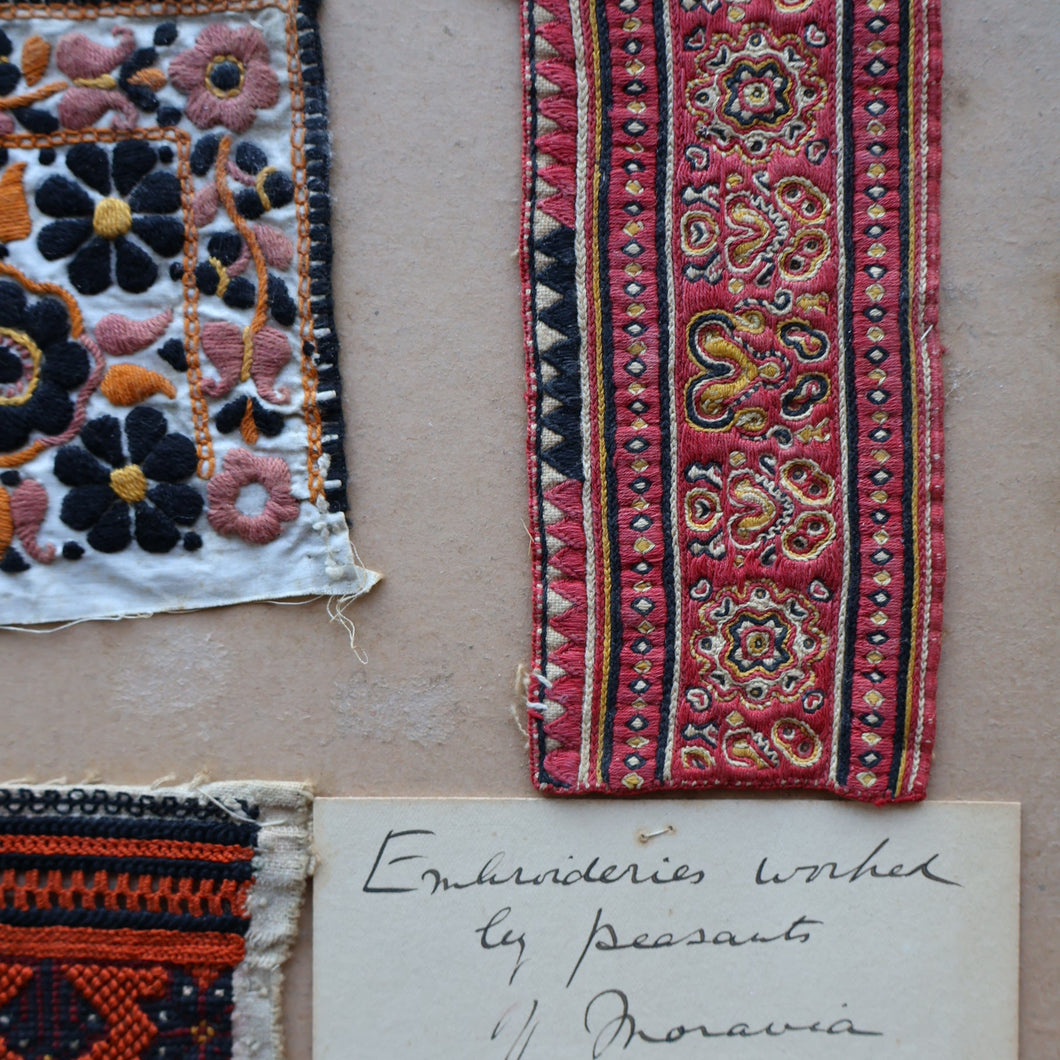 Embroideries worked
by peasants
of Moravia